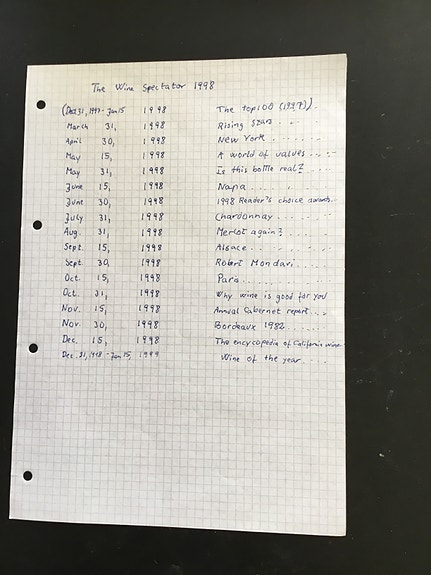 The Wine Spectator 1998
(Dec 31, 1997 - Jan 15 1998 The top 100 (1997))
March 31, 1998 Rising Stars . . . .
April 30, 1998 New York . . . .
May 15, 1998 A world of values . . . .
May 31, 1998 Is this bottle real? . . . .
June 15, 1998 Napa . . . . .
June 30, 1998 1998 Reader's choice awards . .
July 31, 1998 Chardonnay . . . .
Aug. 31, 1998 Merlot again? . . . .
Sept. 15, 1998 Alsace . . . . . .
Sept. 30, 1998 Robert Mondavi . . . .
Oct. 15, 1998 Paris . . . . . .
Oct. 31, 1998 Why wine is good for you
Nov. 15, 1998 Annual Cabernet report . . .
Nov. 30, 1998 Bordeaux 1982 . . . .
Dec. 15, 1998 The encyclopedia of California wine
Dec. 31, 1998 - Jan 15, 1999 Wine of the year . . . .